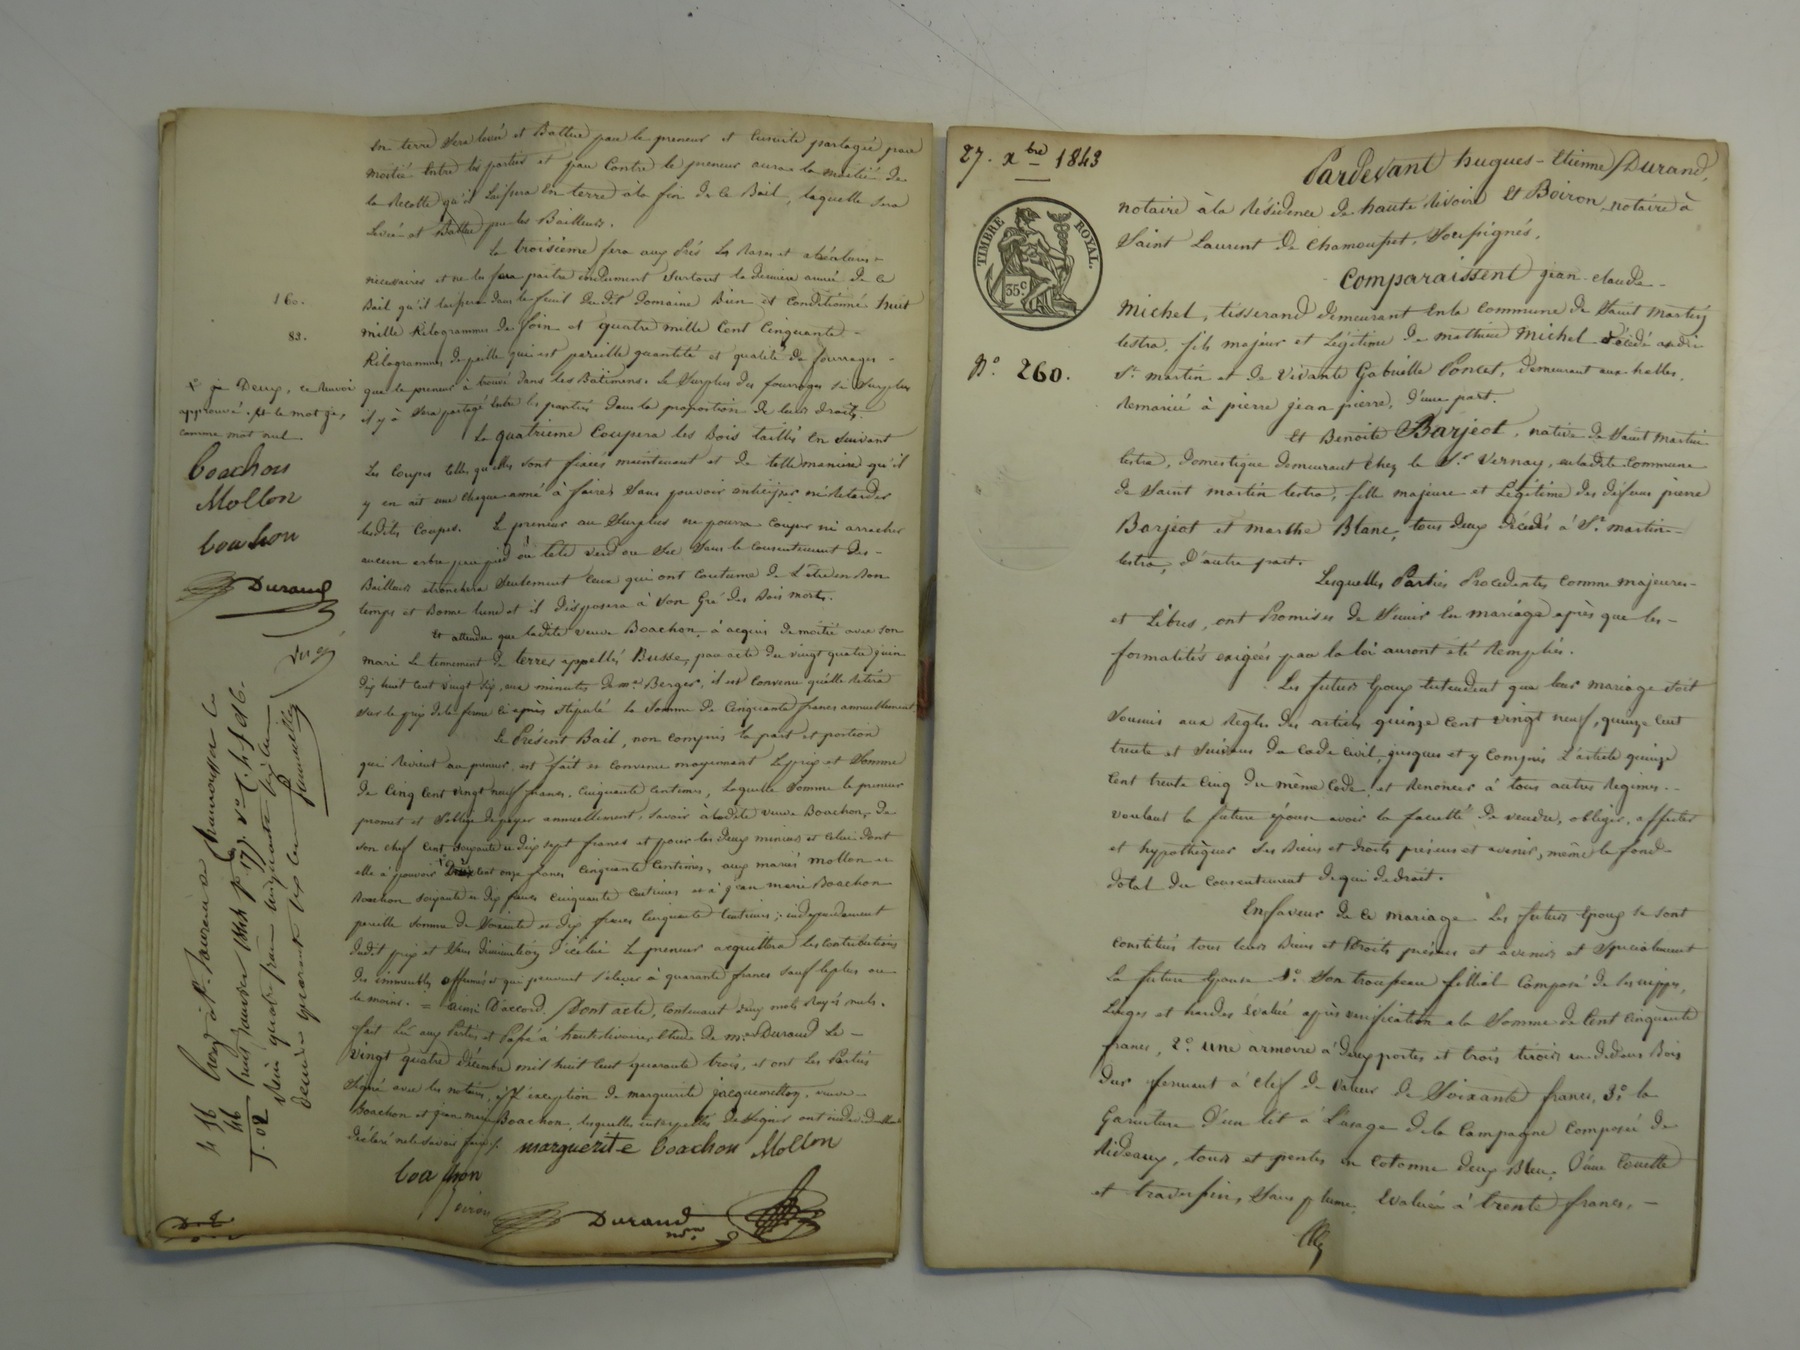 en terre sera levée et Battue par le preneur et ensuite partagée par
moitié entre les parties et par Contre le preneur aura la moitié de
la Recolte qu'il laissera En terre à la fin de ce Bail, laquelle sera
Levée et Battue par les Bailleurs.
Le troisième fera aux Prés les Rases et
nécessaires et ne les fera paitre surtout la derniere année de ce
Bail qu'il laissera dans le fenil dudit Domaine Bien et Conditionné huit
mille Kilogrammes de foin et quatre mille Cent Cinquante
Kilogrammes de paille qui est pareille quantité et qualité de fourrages
que le preneur à trouvé dans les Batimens. le Surplus des fourrages si Surplus
il y à sera partagé Entre les parties Dans la proportion de leurs droits.
Le quatrieme Coupera les Bois taillis En Suivant
Les Coupes telles qu'elles sont fixées maintenant et de telle maniere qu'il
y en ait une chaque année à faire, Sans pouvoir anticiper ni Retarder
lesdites Coupes. Le preneur au Surplus ne pourra Couper ni arracher
aucun arbre par pied ou tete verd ou Sec Sans le Consentement des
Bailleurs Seulement Ceux qui ont Coutume de L'être en Bon
temps et Bonne lune et il disposera à Son Gré des Bois morts.
Et attendu que ladite veuve Boachon à acquis de moitié avec Son
mari Le tennement de terres appellé Busse, par acte du vingt quatre juin
dix huit Cent vingt six, aux minutes de me Berger, il est Convenu qu'elle Retira
Sur le prix de la ferme Ci après Stipulé la Somme de Cinquante francs annuellement
Le Présent Bail, non Compris la part et portion
qui Revient au preneur est fait et Convenu moyennant Le prix et Somme
de Cinq Cent vingt neuf francs Cinquante Centimes, Laquelle Somme le preneur
promet et S'oblige de payer annuellement, Savoir à ladite veuve Boachon, de
son chef Cent Soixante et dix sept francs et pour les deux mineurs et Celui dont
elle à pouvoir Deux Cent onze francs Cinquante Centimes, aux mariés mollon et
Boachon Soixante et dix francs Cinquante Centimes et à jean marie Boachon
pareille Somme de Soixante et dix francs Cinquante Centimes; indépendament
dudit prix et Sans diminution d'icelui Le preneur acquittera les Contributions
des immeubles affermés et qui peuvent s'élever à quarante francs Sauf le plus ou
le moins. = ainsi D'accord / Dont acte, Contenant deux mots Rayés nuls.
fait Lu aux Parties et Passé à haute Rivoire, Etude de me Durand Le
vingt quatre décembre mil huit Cent quarante trois, et ont Les Parties
Signé avec les notaires, à L'exception de marguerite jacquemetton, veuve
Boachon et jean marie Boachon, lesquelles interpellées de Signer ont
déclaré ne le Savoir faire /.
marguerite boachon Mollon
boachon
Boiron
Durand
nore
160.
83.
Deux, ce Renvoi
approuvé. Et le mot
comme mot nul
boachon
Mollon
boachon
Durand
Enregistré à St. Laurent de Chamousset le
huit Janvier 1844 fo 177. Vo
Reçu quatre francs cinquante
27. xbre 1843
TIMBRE ROYAL.
35c
No. 260.
Pardevant hugues-Etienne Durand,
notaire à la Résidence de haute Rivoire Et Boiron notaire à
Saint Laurent De Chamousset, Soussignés.
Comparaissent jean claude
Michel, tisserand demeurant En la commune de Saint Martin
lestra, fils majeur et Légitime de mathieu Michel décédé audit
St. martin et de vivante Gabrielle Poncet, demeurant aux halles,
Remariée à pierre jean pierre, d'une part.
Et Benoite Barjeot, native de Saint Martin
lestra, domestique demeurant chez le Sr Vernay, en ladite Commune
de Saint martin lestra, fille majeure et Légitime des défunts pierre
Barjeot et marthe Blanc, tous deux décédés à St. martin
lestra, d'autre part.
Lesquelles Parties Procédantes Comme majeures
et Libres, ont Promises de S'unir en mariage après que les
formalités exigées par la loi auront été Remplies.
Les futurs Epoux Entendent que leur mariage Soit
Soumis aux Règles des articles quinze Cent vingt neuf, quinze Cent
trente et Suivans du Code Civil, jusques et y Compris L'article quinze
Cent trente Cinq du même Code, et Renoncer à tous autres Régimes
voulant la future épouse avoir la faculté de vendre, obliger, affecter
et hypothèquer Ses Biens et droits présens et avenir, même le fond
dotal du Consentement de qui de droit.
En faveur de ce mariage Les futurs Epoux Se sont
Constitués tous leurs Biens et Droits présens et avenirs et Spécialement
La future Epouse 1o Son trousseau fillial Composé de Ses nippes,
Linges et hardes Evalué après vérification à la Somme de Cent Cinquante
francs, 2o Une armoire à deux portes et trois tiroirs au dedans Bois
dur fermant à clef de valeur de Soixante francs, 3o la
Garniture d'un lit à L'usage de la Campagne Composée de
Rideaux, tours et pentes en Cotonne deux Bleu, d'une Couette
et traversin, Sans plume Evaluée à trente francs,